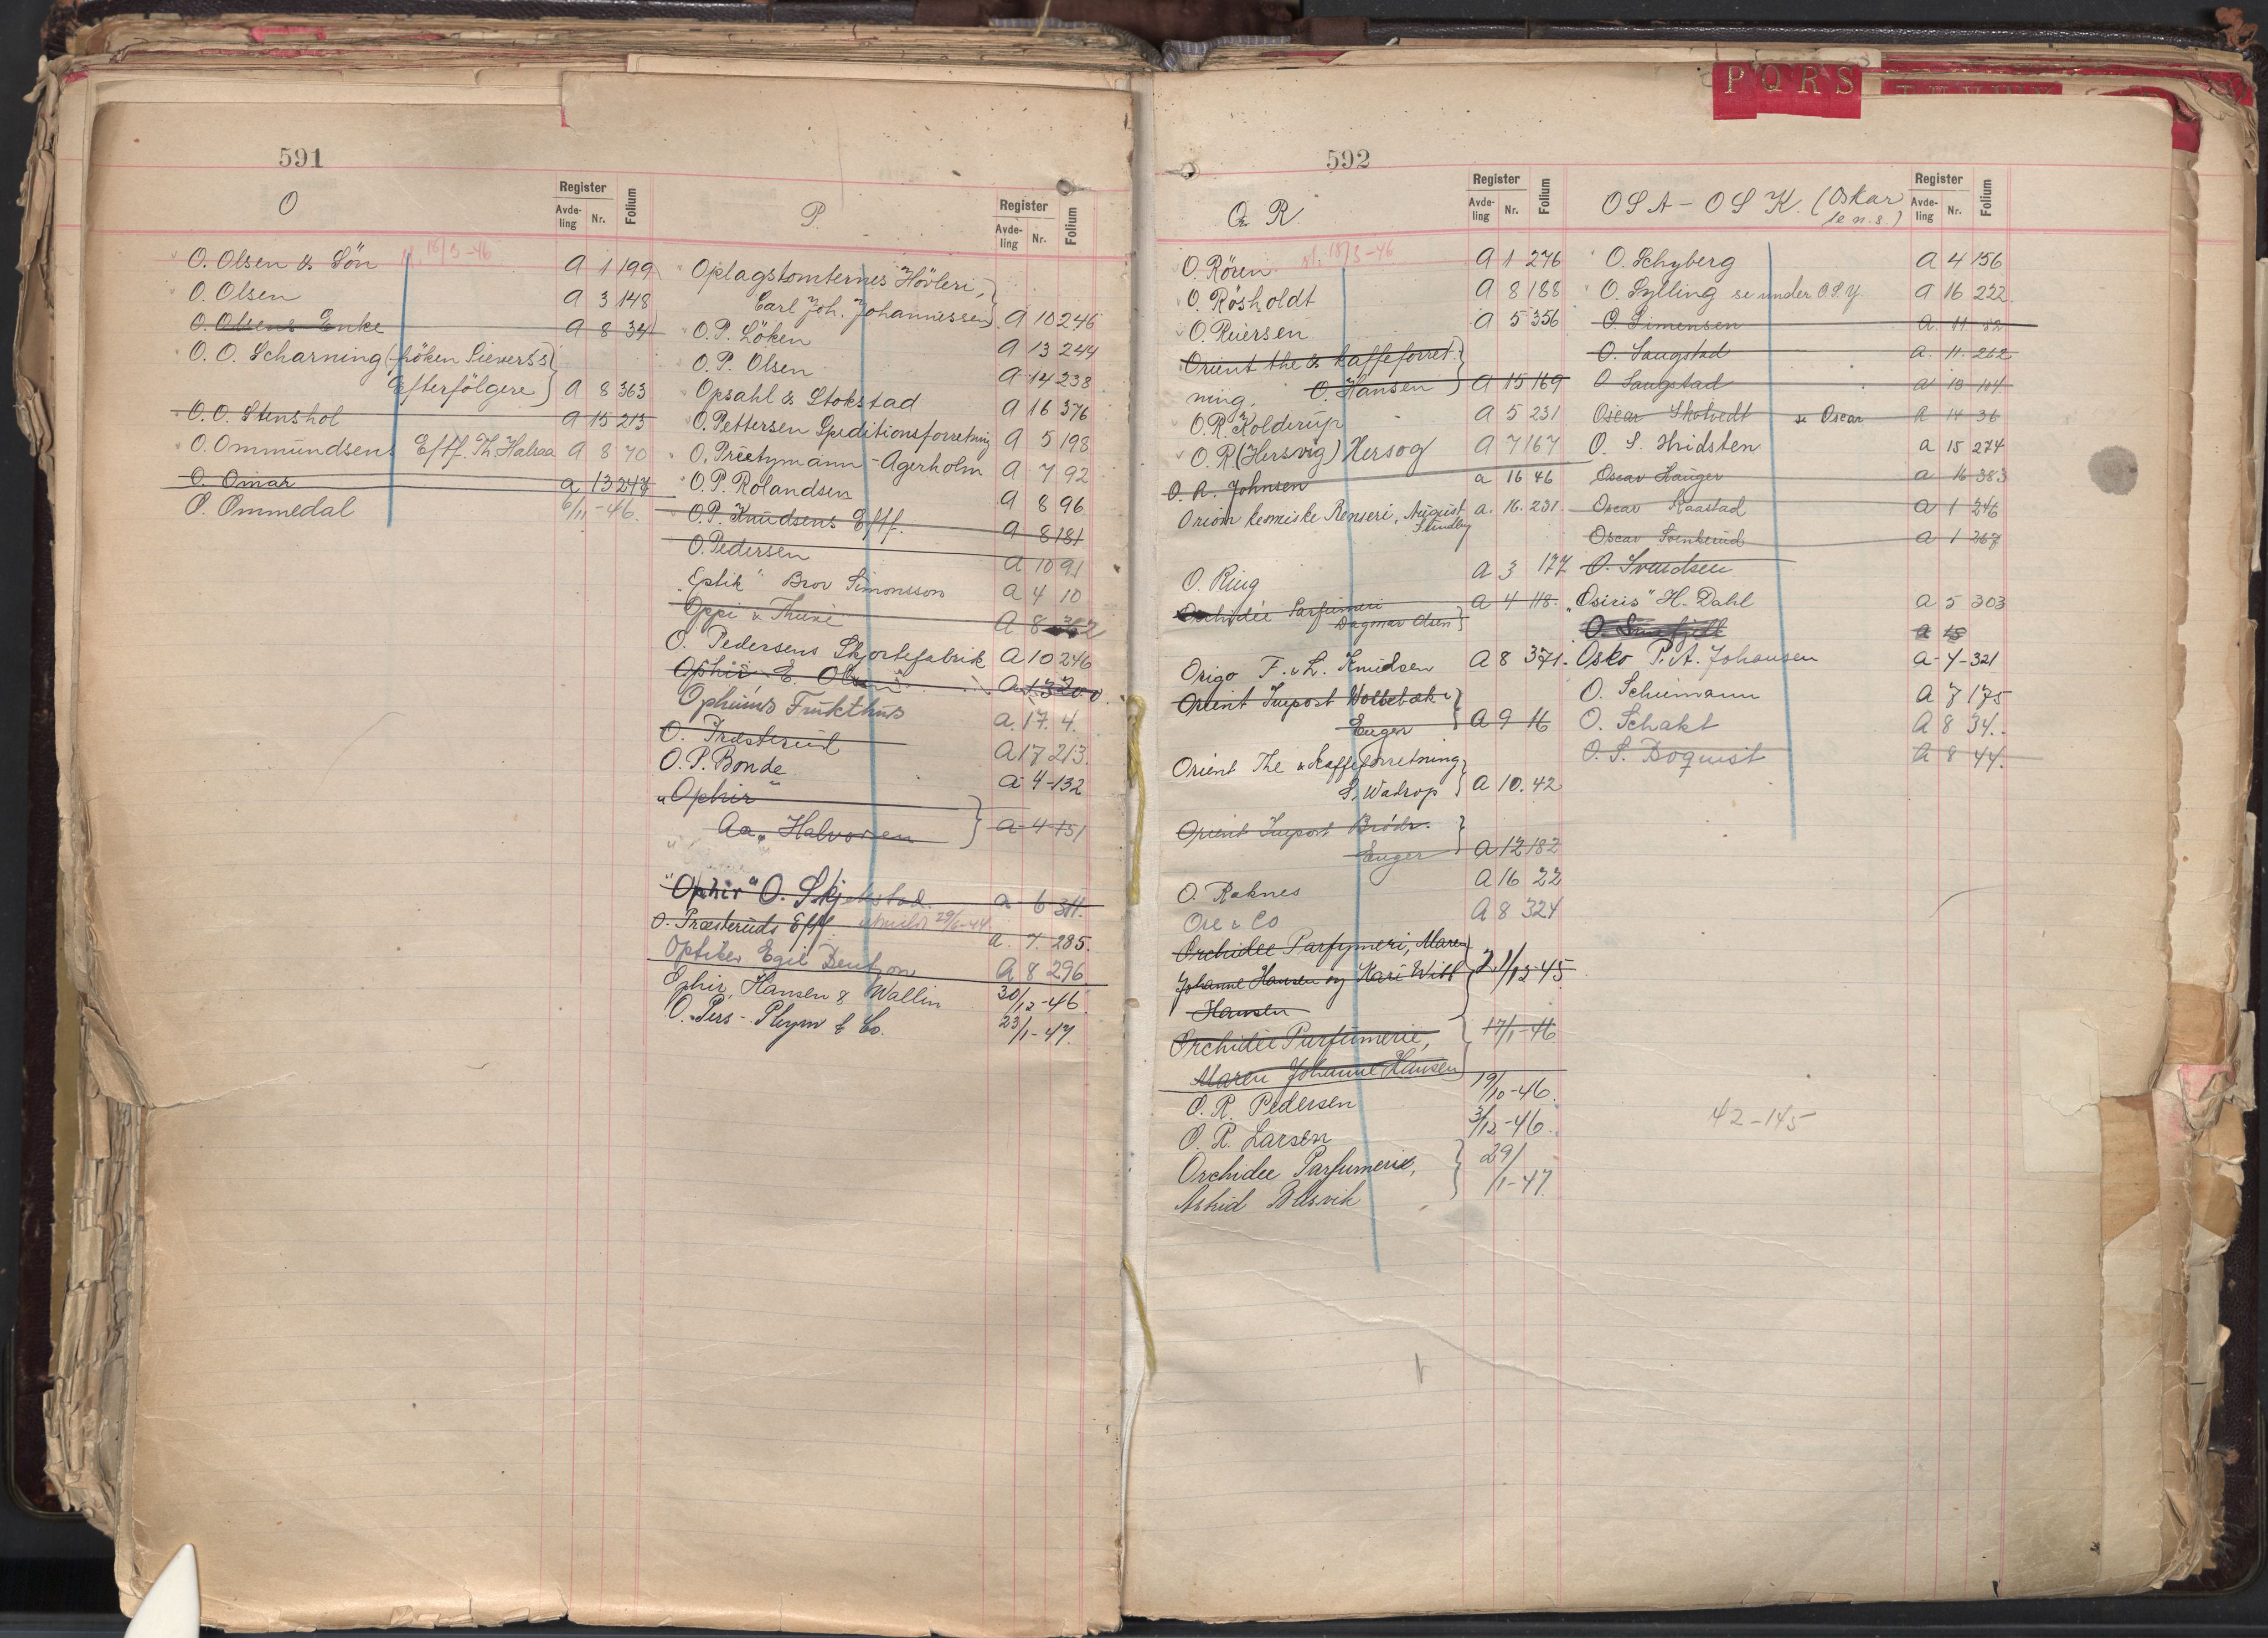 591
O
Register
Avde-
ling
Nr.
Folium
18/3-46
O. Olsen & Sön A 1 199
O. Olsen A 3 148
O. Olsens Enke A 8 34
O. O. Scharning (fröken Sieverss
Efterfölgere) A 8 363
O. O. Stenshol A 15 213
O. Ommundsens Eftf. Th. Halsaa A 8 70
O. Omar a 13 248
O. Ommedal 6/11-46.
P.
Register
Avde-
ling
Nr.
Folium
Oplagstomternes Hövleri,
Carl Joh. Johannessen A 10 246
O. P. Löken A 13 244
O. P. Olsen A 14 238
Opsahl & Stokstad A 16 376
O. Pettersen Speditionsforretning A 5 198
O. Preetzmann-Agerholm A 7 92
O. P. Rolandsen A 8 96
O. P. Knudsens Eftf. A 8 181
O. Pedersen A 10 91
"Eptik" Bror Simonsson A 4 10
Oppi & Thune A 8 362
O. Pedersens Skjortefabrik A 10 246
Ophir E. Olsen A 13 200
Ophiums Frukthus a. 17. 4.
O. Præsterud A 17 213.
O. P. Bonde a 4-132
"Ophir"
Aa. Halvorsen a-4 151
"Ophir" O. Skjelstad a 6 311.
O. Præsteruds Eftf. 29/6-44 a. 7. 285.
Optiker Egil Bentzon A 8 296
Ophir, Hansen & Wallin 30/12-46.
O. Pers-Pleym & Co. 23/1-47.
PQRS
592
O. R.
Register
Avde-
ling
Nr.
Folium
18/3-46
O. Rören A 1 276
O. Rösholdt A 8 188
O. Reiersen A 5 356
Orient the & kaffeforret-
ning, O. Hansen A 15 169
O. R. Kolderup A 5 231
O. R. (Hersvig) Hersog A 7 167
O. R. Johnsen a 16 46
Orion kemiske Renseri, August a. 16. 231
Sundby
O. Ring A 3 177
Orchidée Parfumeri
Dagmar Olsen A 4 118.
Origo F. & L. Knudsen A 8 371.
Orient Import Wolbetek
Enger A 9 16
Orient The & Kaffeforretning
S. Wadrop A 10. 42
Orient Import Brödr.
Enger A 12 182
O. Raknes A 16 22
Ore & Co A 8 324
Orchidee Parfymeri, Maren
Johanne Hansen og Kari Witt
Hansen 21/12-45
Orchidée Parfumerie,
Maren Johanne Hansen 17/1-46
O. R. Pedersen 19/10-46.
O. R. Larsen 3/12-46.
Orchidee Parfumerie,
Astrid Blisvik 29/1-47.
OSA-OSK. (Oskar
l.n.s.)
Register
Avde-
ling
Nr.
Folium
O. Schyberg A 4 156
O. Sylling se under O.S.Y. A 16 222
O. Simensen A 11 32
O. Saugstad A. 11. 262
O. Saugstad A 13 104
Oscar Skotvedt se Oscar A 14 36
O. S. Hvidsten a 15 274
Oscar Hauger a 16 383
Oscar Raastad A 1 246
Oscar Svenkerud A 1 367
O. Svendsen
"Osiris" H. Dahl A 5 303
a 15
Osko P. A. Johansen a-7-321
O. Schumann A 7 175
O. Schakt A 8 34.
O. S. Boquist A 8 44.
42-145